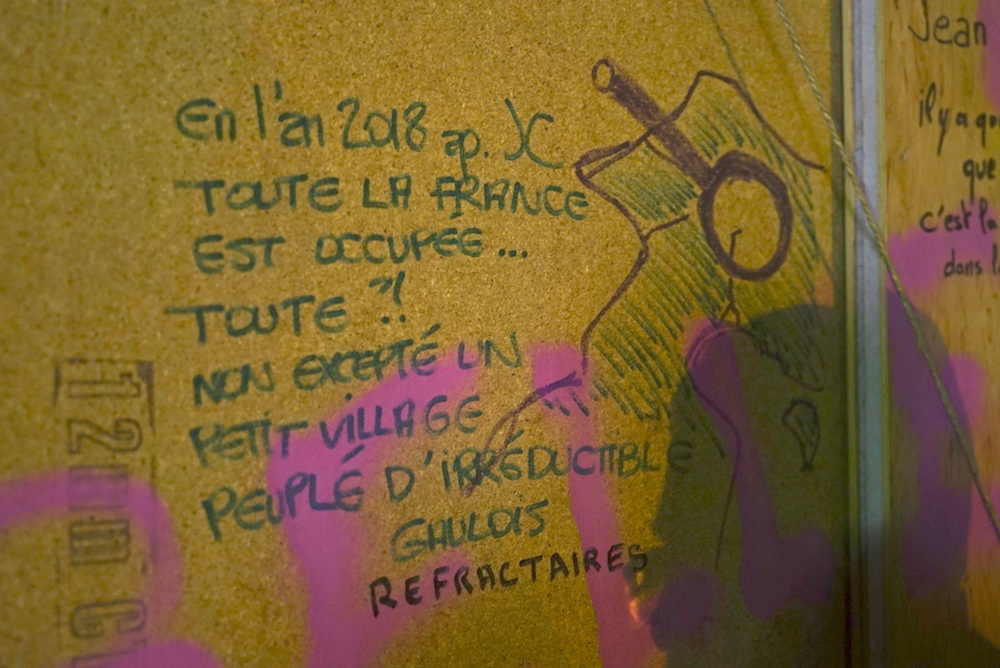 En l'an 2018 ap. JC
TOUTE LA FRANCE
EST OCCUPÉE...
TOUTE ?!
NON EXCEPTÉ UN
PETIT VILLAGE
PEUPLÉ D'IRRÉDUCTIBLE
GAULOIS
REFRACTAIRES
Jean
il y a
que
c'est
dans